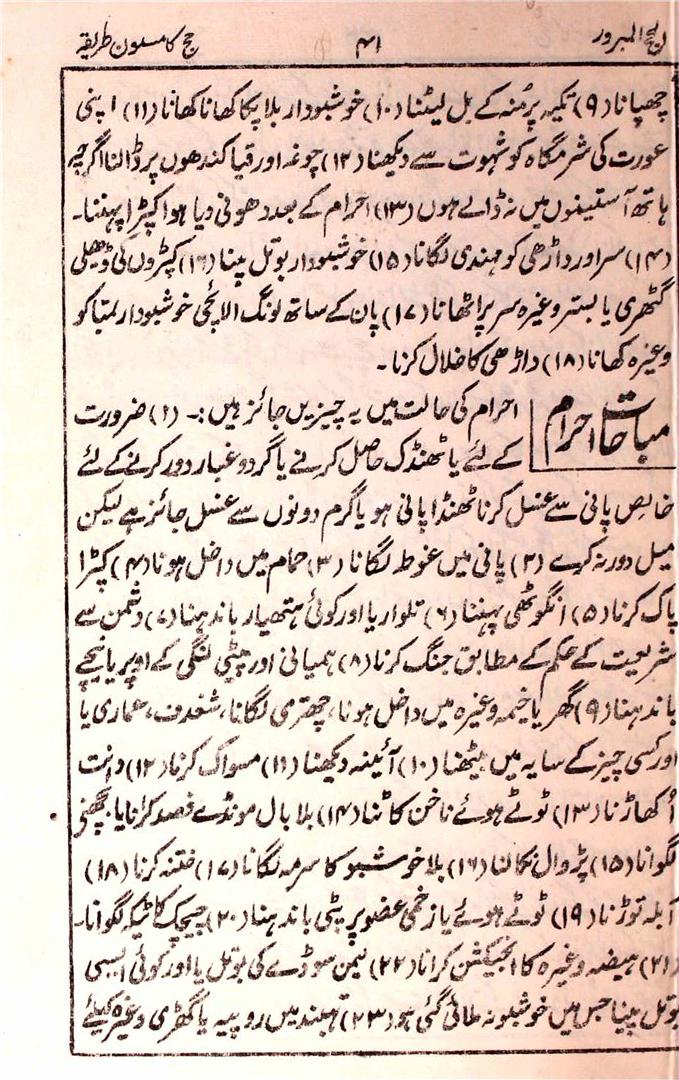 الحج المبرور ۴۱ حج کا مسنون طریقہ
چھپانا (۹) تکیہ پر مُنہ کے بل لیٹنا (۱۰) خوشبودار بلا پکا کھانا کھانا (۱۱) اپنی
عورت کی شرمگاہ کو شہوت سے دیکھنا (۱۲) چوغہ اور قبا کندھوں پر ڈالنا اگرچہ
ہاتھ آستینوں میں نہ ڈالے ہوں (۱۳) احرام کے بعد دھونی دیا ہوا کپڑا پہننا۔
(۱۴) سر اور داڑھی کو مہندی لگانا (۱۵) خوشبودار بوتل پینا (۱۶) کپڑوں کی ڈھیلی
گٹھری یا بستر وغیرہ سر پر اٹھانا (۱۷) پان کے ساتھ لونگ الائچی خوشبودار تمباکو
وغیرہ کھانا (۱۸) داڑھی کا خلال کرنا۔
مباحات احرام احرام کی حالت میں یہ چیزیں جائز ہیں:۔ (۱) ضرورت
کے لئے یا ٹھنڈک حاصل کرنے یا گرد و غبار دور کرنے کے لئے
خالص پانی سے غسل کرنا ٹھنڈا پانی ہو یا گرم دونوں سے غسل جائز ہے لیکن
میل دور نہ کرے (۲) پانی میں غوطہ لگانا (۳) حمام میں داخل ہونا (۴) کپڑا
پاک کرنا (۵) انگوٹھی پہننا (۶) تلوار یا اور کوئی ہتھیار باندھنا (۷) دشمن سے
شریعت کے حکم کے مطابق جنگ کرنا (۸) ہمیانی اور پیٹی لنگی کے اوپر یا نیچے
باندھنا (۹) گھر یا خیمہ وغیرہ میں داخل ہونا، چھتری لگانا، شغدف، عماری یا
اور کسی چیز کے سایہ میں بیٹھنا (۱۰) آئینہ دیکھنا (۱۱) مسواک کرنا (۱۲) دانت
اُکھاڑنا (۱۳) ٹوٹے ہوئے ناخن کاٹنا (۱۴) بلا بال مونڈے فصد کرانا یا پچھنی
لگوانا (۱۵) پڑوال نکالنا (۱۶) بلا خوشبو کا سرمہ لگانا (۱۷) ختنہ کرنا (۱۸)
آبلہ توڑنا (۱۹) ٹوٹے ہوئے یا زخمی عضو پر پٹی باندھنا (۲۰) چیچک کا ٹیکہ لگوانا۔
(۲۱) ہیضہ وغیرہ کا انجیکشن کرانا (۲۲) لیمن سوڈے کی بوتل یا اور کوئی ایسی
بوتل پینا جس میں خوشبو نہ ملائی گئی ہو (۲۳) تہبند میں روپیہ یا گھڑی وغیرہ کیلئے